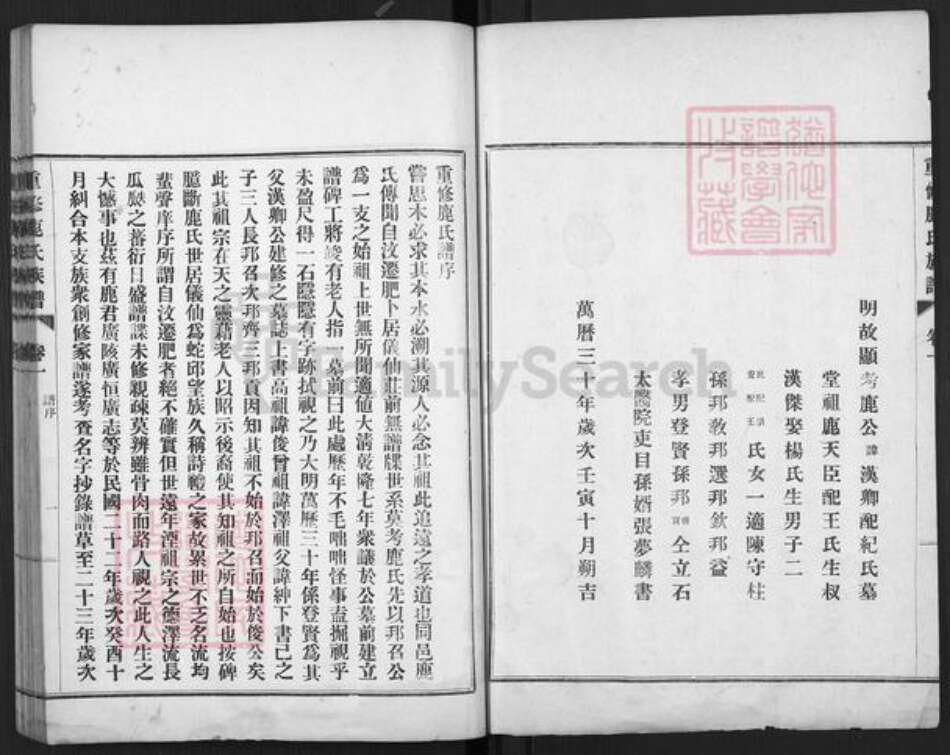 明故顯考鹿公諱漢卿配紀氏墓
堂祖鹿天臣配王氏生叔
漢傑娶楊氏生男子二
氏女一適陳守柱
孫邦敎邦選邦欽邦益
孝男登賢孫邦仝立石
太醫院吏目孫婿張夢麟書
萬曆三十年歲次壬寅十月朔吉
重修鹿氏譜序
嘗思木必求其本水必溯其源人必念其祖此追遠之孝道也同邑鹿
氏傳聞自汶遷肥卜居儀仙莊前無譜牒世系莫考鹿氏先以邦召公
爲一支之始祖上世無所聞適値大清乾隆七年衆議於公墓前建立
譜碑工將竣有老人指一墓前曰此處歷年不毛咄咄怪事盍掘視乎
未盈尺得一石隱隱有字跡拭視之乃大明萬曆三十年係登賢爲其
父漢卿公建修之墓誌上書高祖諱俊曾祖諱澤祖父諱紳下書己之
子三人長邦召次邦齊三邦貢因知其祖不始於邦召而始於俊公矣
此其祖宗在天之靈藉老人以昭示後裔使其知祖之所自始也按碑
臆斷鹿氏世居儀仙爲蛇邱望族久稱詩禮之家故累世不乏名流均
蜚聲庠序所謂自汶遷肥者絕不確實但世遠年湮祖宗之德澤流長
瓜瓞之蕃衍日盛譜諜未修親疎莫辨雖骨肉而路人視之此人生之
大憾事也茲有鹿君廣陔廣恒廣志等於民國二十二年歲次癸酉十
月糾合本支族衆創修家譜遂考查名字抄錄譜草至二十三年歲次
重修鹿氏族譜
卷一
譜序
一
FamilySearch